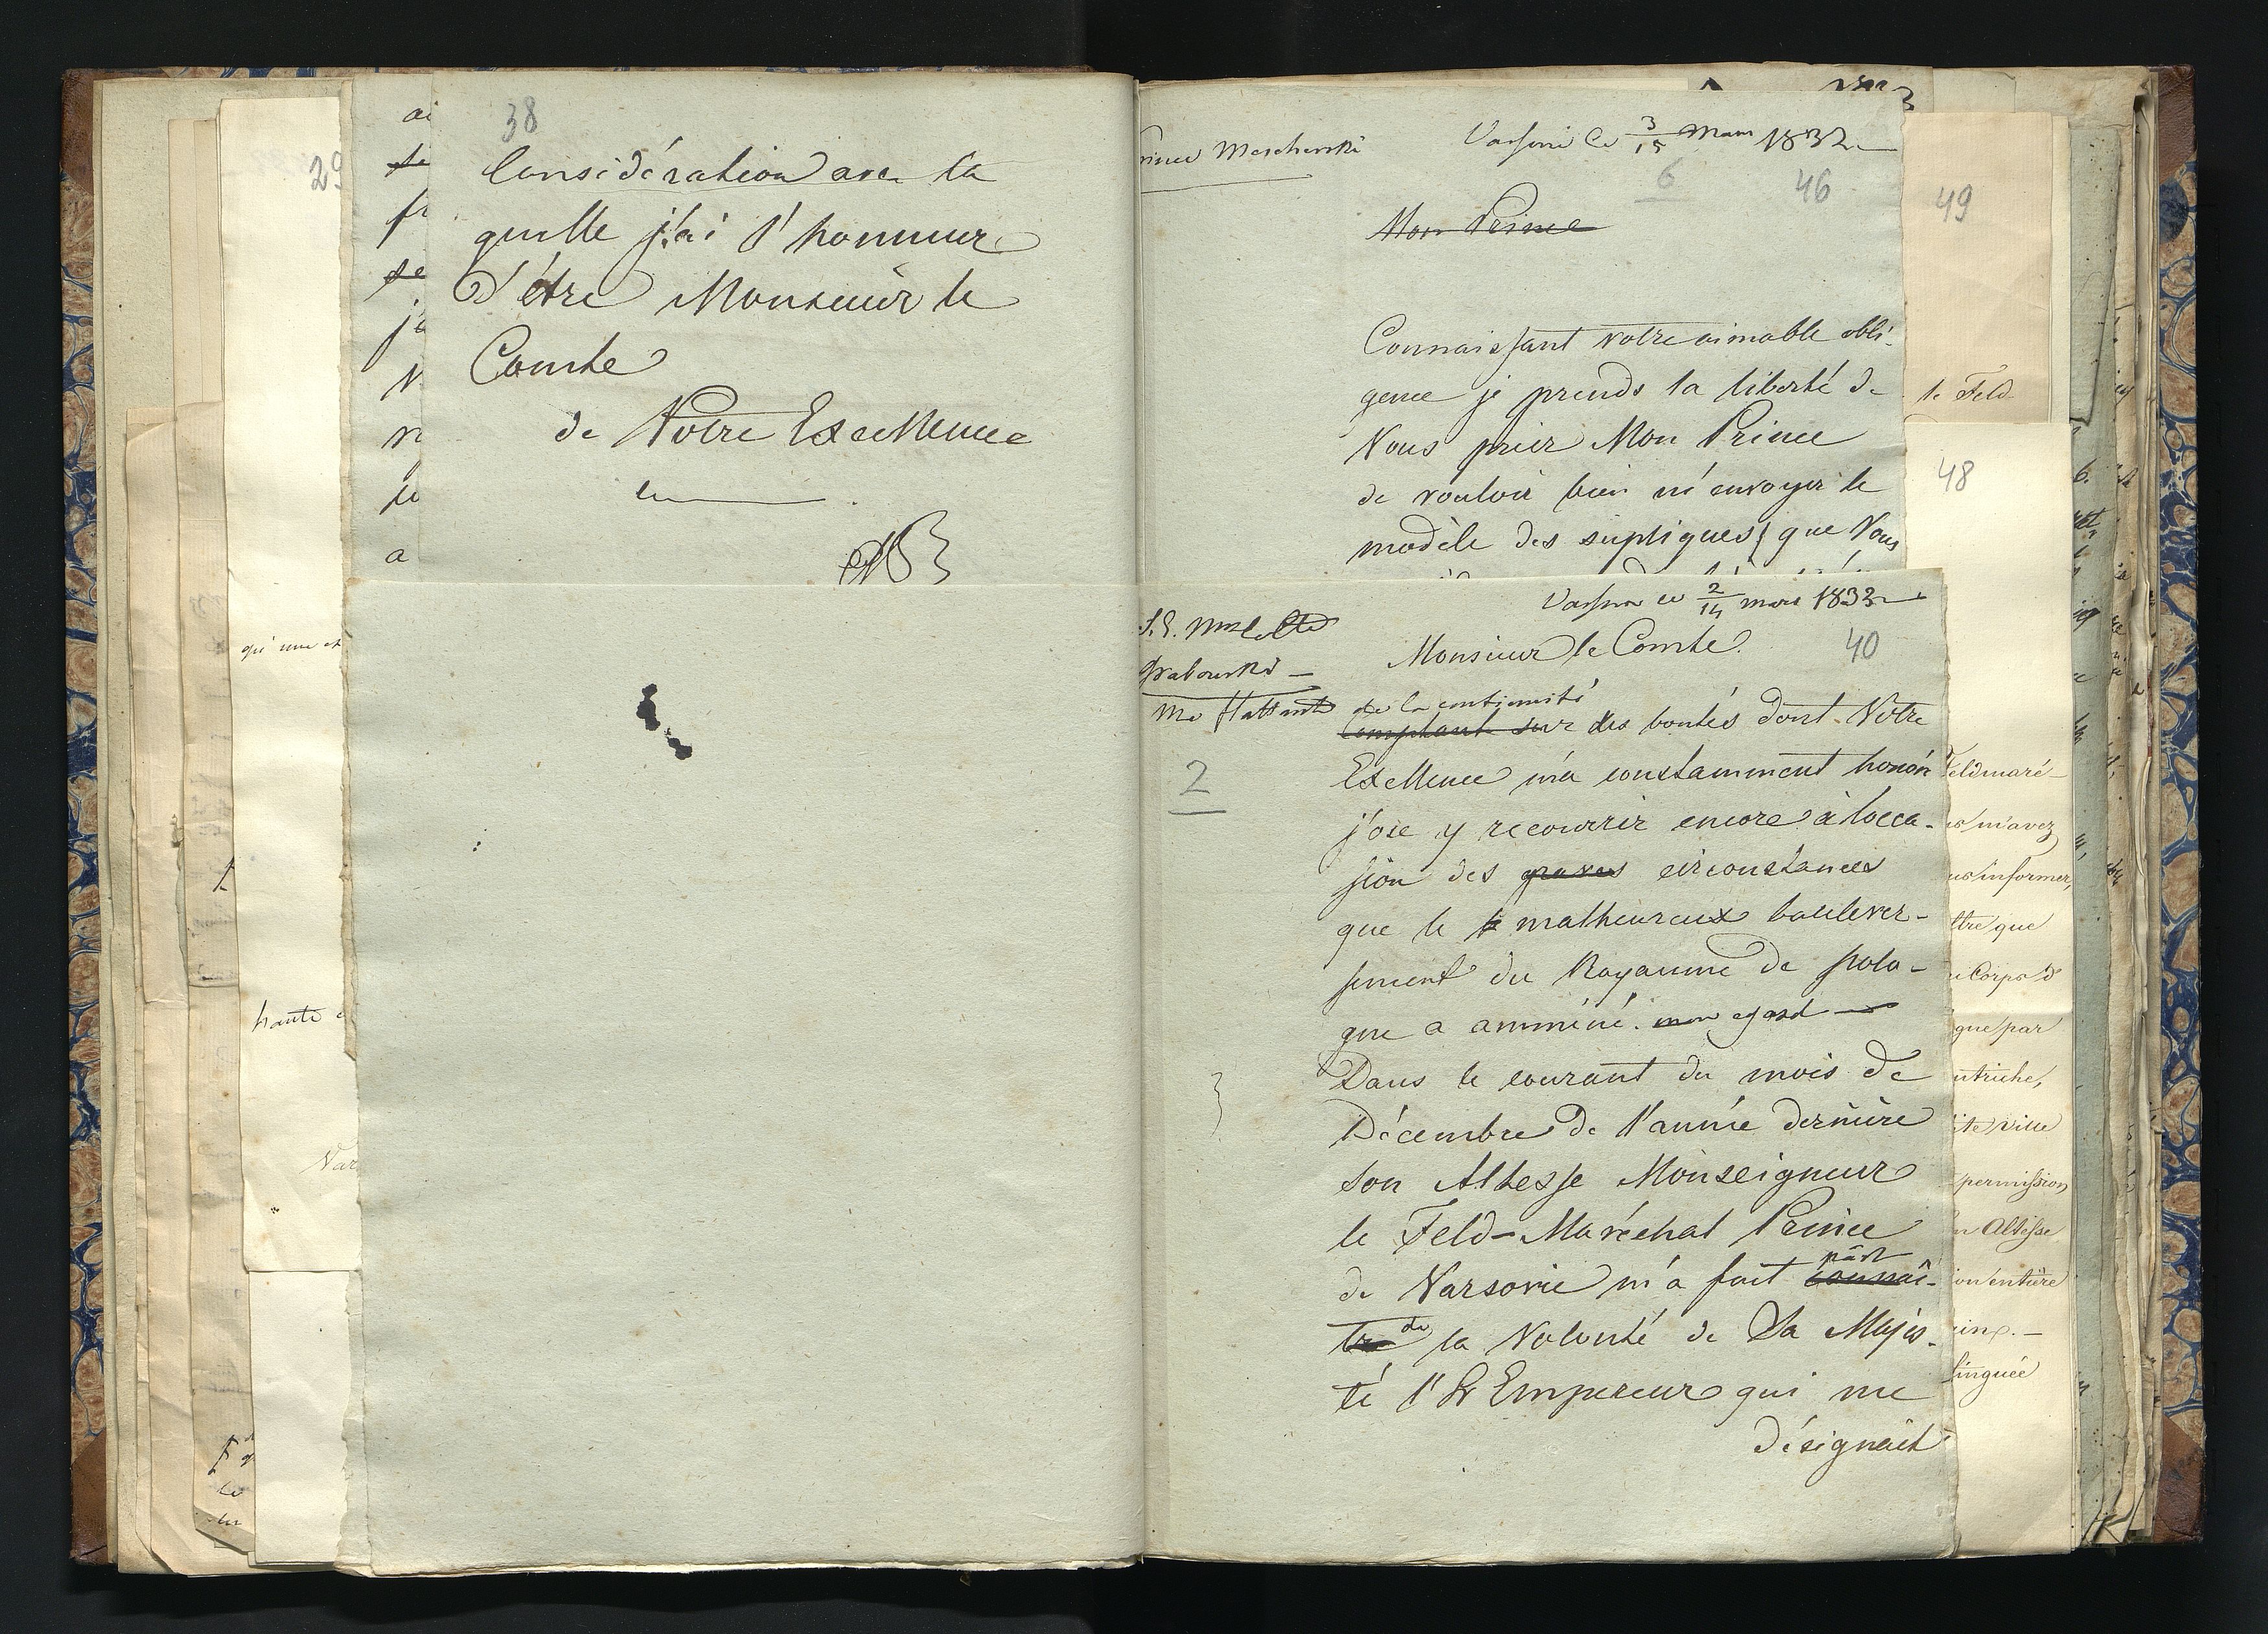 38
Considération avec la
quelle j'ai l'honneur
d'être Monsieur le
Comte
de Votre Excellence
29
qu'une et
haute
Var
Prince Mescherski
Varsovie ce 3/15 Mars 1832
6
46
Mon Prince
Connaissant votre aimable obli-
geance je prends la liberté de
Vous prier Mon Prince
de vouloir bien m'envoyer le
modèle des supliques que Vous
S. E. Mr le Cte
Grabowski
me flattant
2
Varsovie ce 2/14 mars 1832
Monsieur le Comte
40
de la continuité
Comptant sur des bontés dont Votre
Excellence m'a constamment honoré
j'ose y recourrir encore à l'occa-
sion des graves circonstances
que le malheureux boulever-
sement du Royaume de Polo-
gne a amméné. mon egard
Dans le courant du mois de
Décembre de l'année dernière
Son Altesse Monseigneur
le Feld-Maréchal Prince
part
de Varsovie m'a fait connaî-
tre de la Volonté de Sa Majes-
té l'Empereur qui me
désignait
49
le Feld
48
Feldmaré-
m'avez
informer,
que
Corps d
gue par
utriche,
ite ville
permission
Altesse
ion entière
tinguée